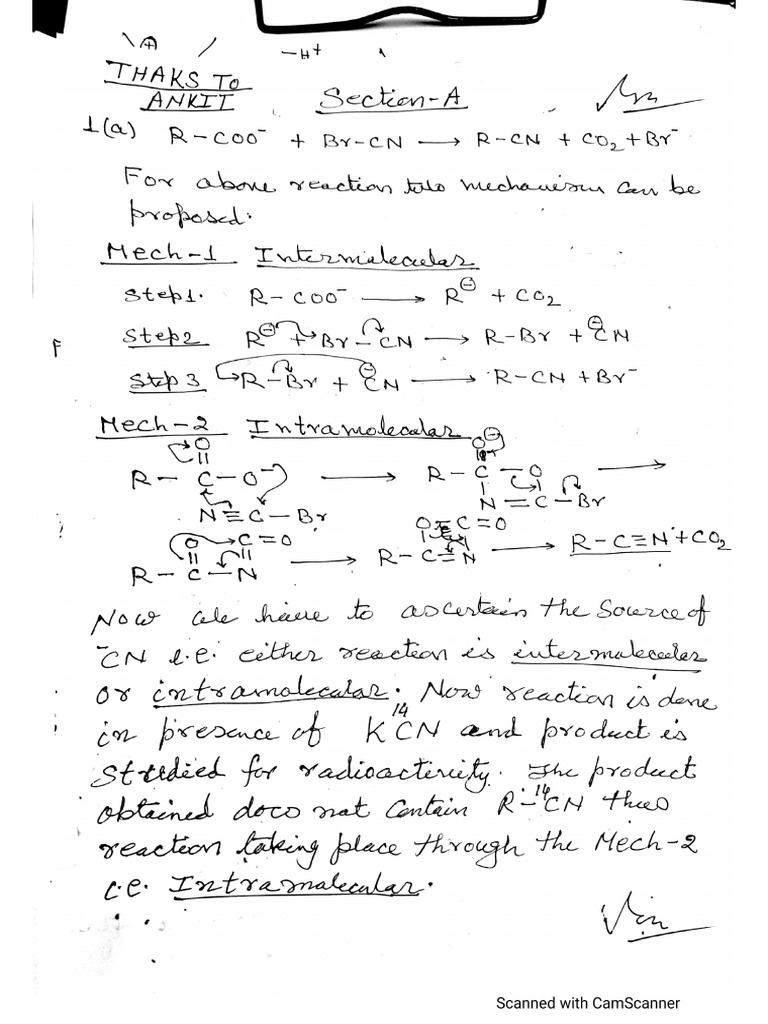 -H⁺
THAKS TO
ANKIT
Section-A
1(a) R-COO⁻ + Br-CN → R-CN + CO₂ + Br⁻
For above reaction two mechanism can be
proposed.
Mech-1 Intermolecular
Step1. R-COO⁻ → R⊖ + CO₂
Step2 R⊖ + Br-CN → R-Br + ⊖CN
Step 3 R-Br + ⊖CN → R-CN + Br⁻
Mech-2 Intramolecular
O O⊖
R-C-O⁻ → R-C-O →
N≡C-Br N=C-Br
O C=O O-C=O
R-C-N → R-C=N → R-C≡N + CO₂
Now we have to ascertain the source of
⁻CN i.e. either reaction is intermolecular
or intramolecular. Now reaction is done
in presence of K¹⁴CN and product is
studied for radioactivity. The product
obtained does not contain R-¹⁴CN thus
reaction taking place through the Mech-2
i.e. Intramolecular.
Scanned with CamScanner